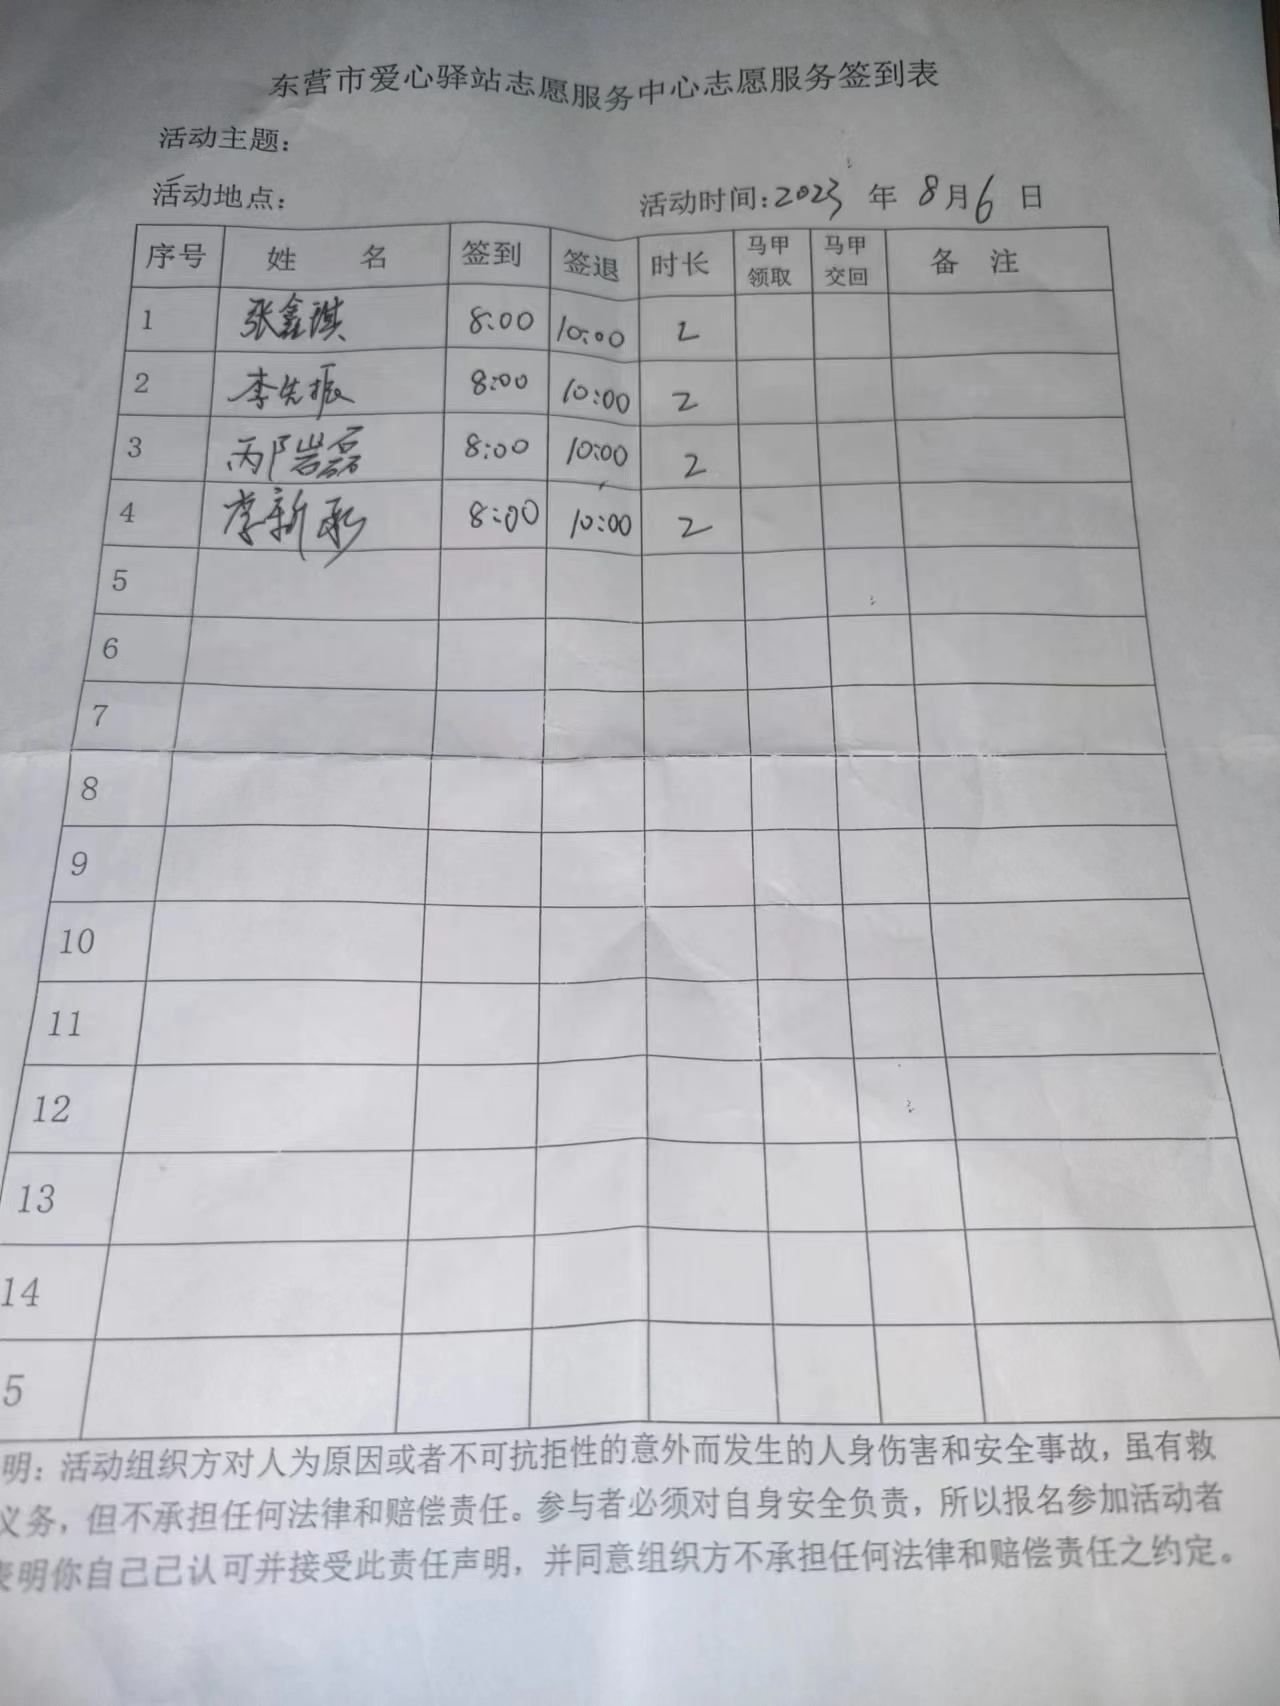 东营市爱心驿站志愿服务中心志愿服务签到表
活动主题：
活动地点： 活动时间:2023 年 8月6 日
序号 姓 名 签到 签退 时长 马甲领取 马甲交回 备 注
1 张鑫琪 8:00 10:00 2
2 李先振 8:00 10:00 2
3 丙阝岩磊 8:00 10:00 2
4 李新 8:00 10:00 2
5
6
7
8
9
10
11
12
13
14
5
明：活动组织方对人为原因或者不可抗拒性的意外而发生的人身伤害和安全事故，虽有救
义务，但不承担任何法律和赔偿责任。参与者必须对自身安全负责，所以报名参加活动者
表明你自己已认可并接受此责任声明，并同意组织方不承担任何法律和赔偿责任之约定。